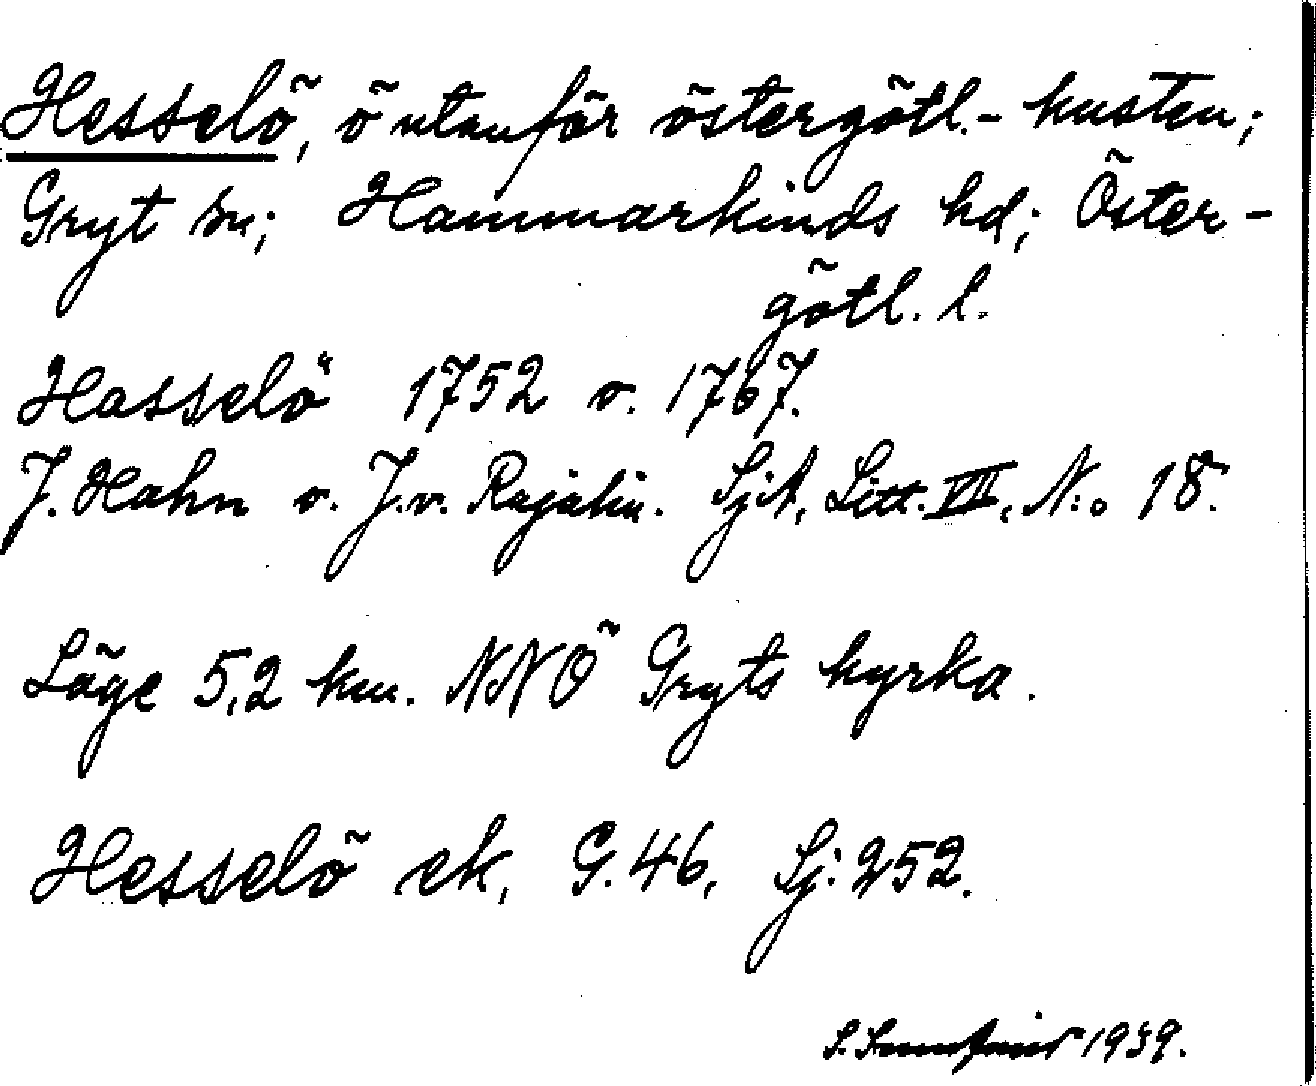 Hesselö, ö utanför östergötl.- kusten;
Gryt sn; Hammarkinds hd; Öster-
götl. l.
Hasselö 1752 o. 1767.
J. Hahn o. J. v. Rajalin. SjA, Litt. VII, N:o 18.
Läge 5,2 km. NNÖ Gryts kyrka.
Hesselö ek, G. 46, Sj: 252.
S. 1939.